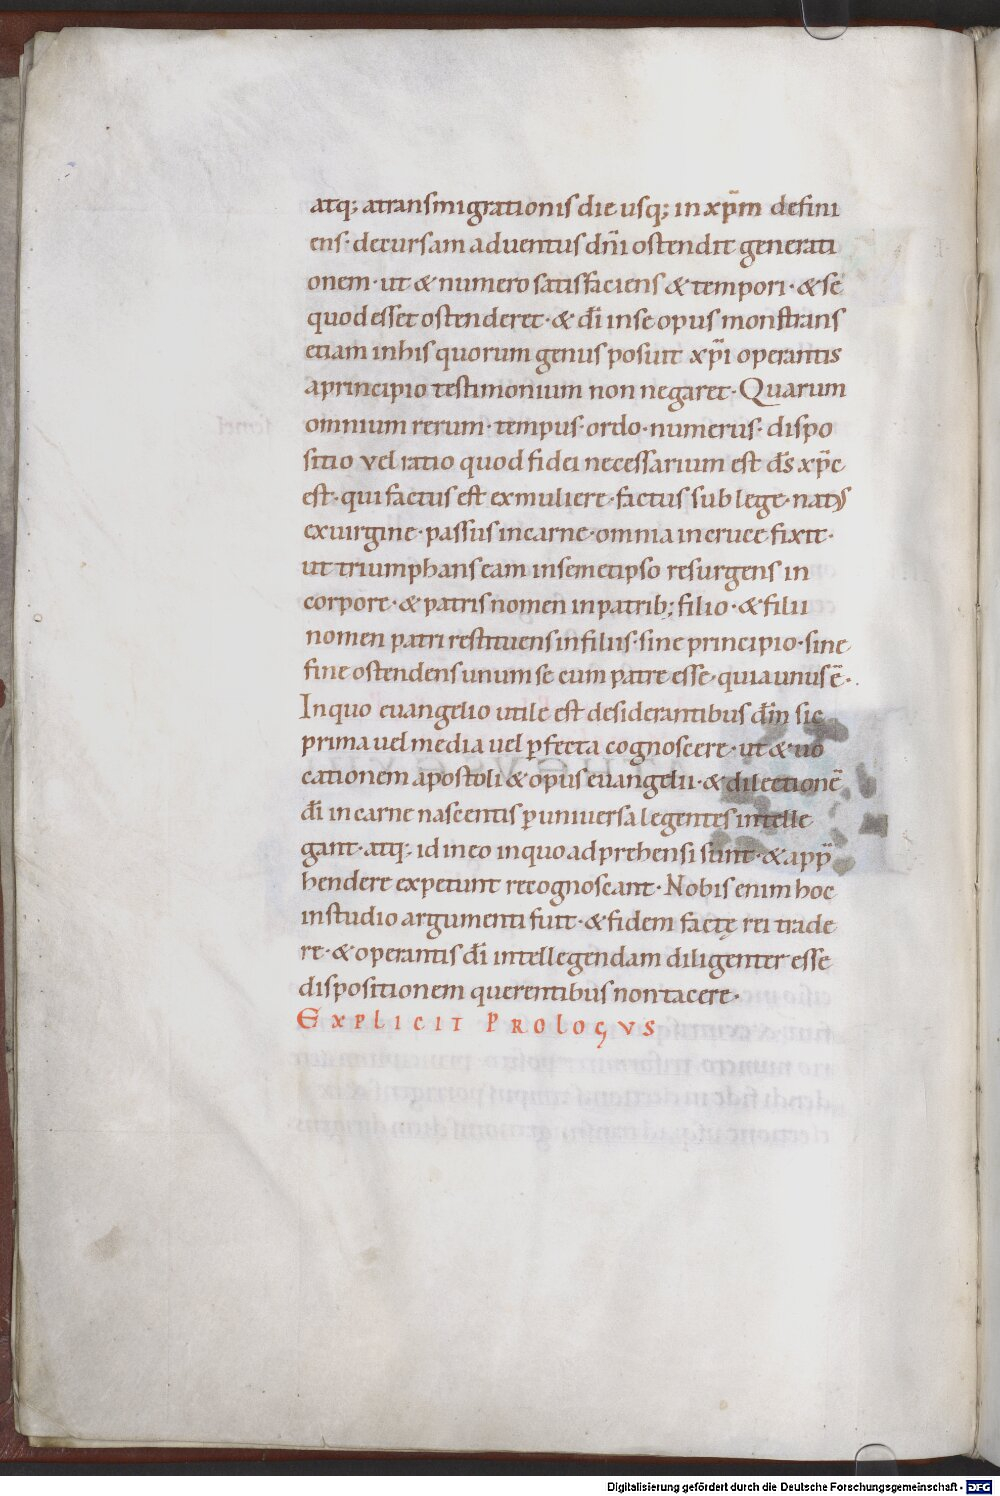 atq; atransmigrationis die usq; in xp̄m defini
ens· decursam aduentus dn̄i ostendit generati
onem· ut & numero satisfaciens & tempori· & sē
quod esset ostenderet· & dī in se opus monstrans
etiam inhis quorum genus posuit xp̄i operantis
aprincipio testimonium non negaret· Quarum
omnium rerum· tempus· ordo· numerus· dispo
sitio vel ratio quod fidei necessarium est ds̄ xp̄c
est· qui factus est exmuliere· factus sub lege· natus
exuirgine· passus incarne· omnia incruce fixit·
ut triumphans eam insemetipso resurgens in
corpore· & patris nomen inpatrib; filio· & filii
nomen patri restituens infiliis· sine principio· sine
fine ostendens unum se cum patre esse· quia unus ē·
Inquo euangelio utile est desiderantibus dm̄ sic
prima uel media uel ꝑfecta cognoscere· ut & uo
cationem apostoli & opus euangelii· & dilectionē
dī in carne nascentis ꝑ uniuersa legentes intelle
gant· atq; id in eo inquo adprehensi sunt· & app̄
hendere expetunt recognoscant· Nobis enim hoc
instudio argumenti fuit· & fidem factę rei trade
re· & operantis dī intellegendam diligenter esse
dispositionem querentibus non tacere·
EXPLICIT PROLOGVS
Digitalisierung gefördert durch die Deutsche Forschungsgemeinschaft - DFG